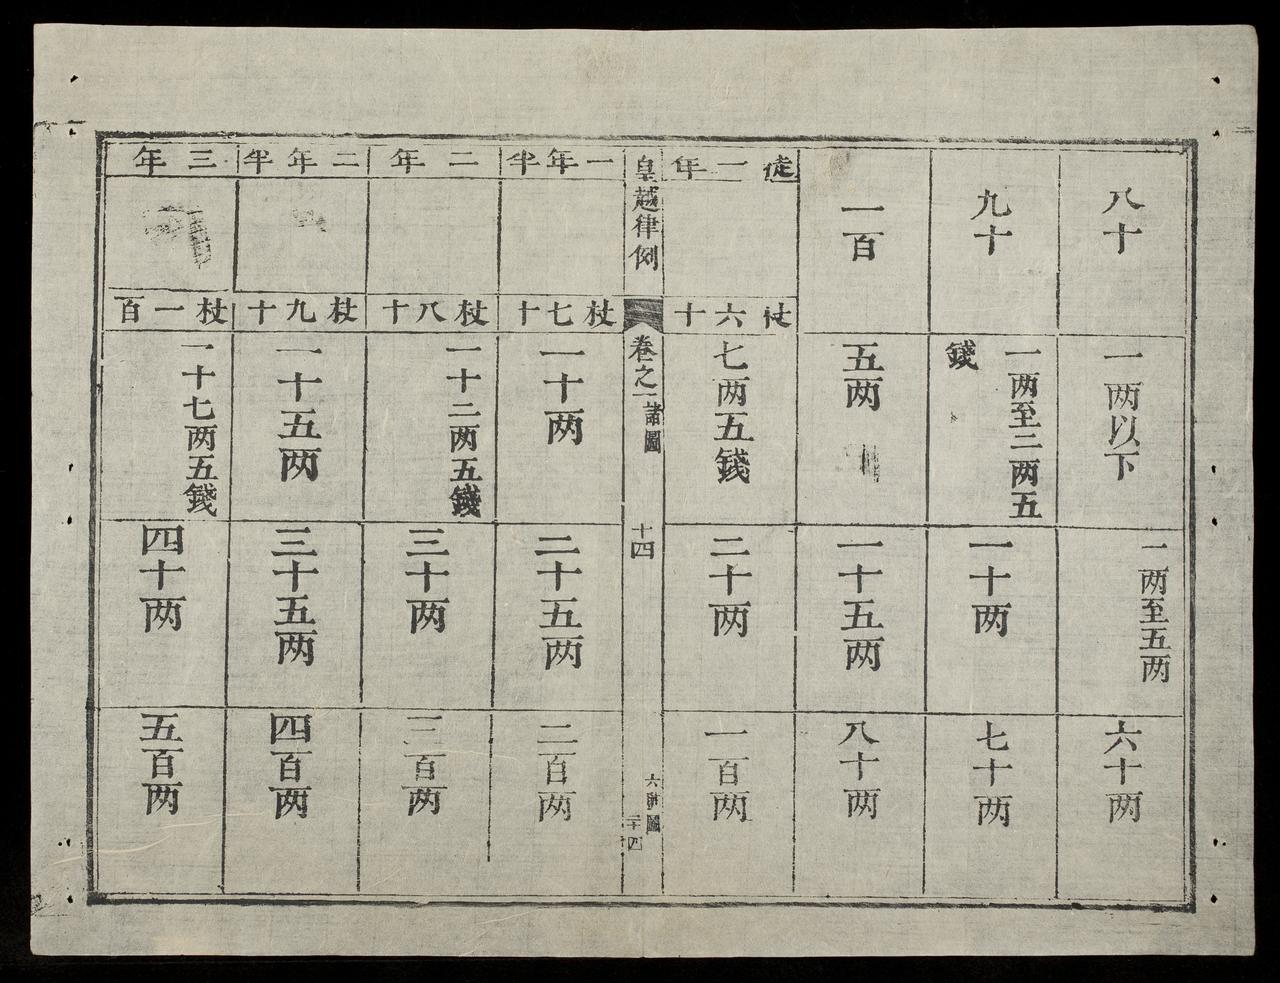 八十
一两以下
一两至五两
六十两
九十
一两至二两五
錢
一十两
七十两
一百
五两
一十五两
八十两
徒一年
杖六十
七两五錢
二十两
一百两
皇越律例
卷之一
諸圖
十四
六贓圖
二十四
一年半
杖七十
一十两
二十五两
二百两
二年
杖八十
一十二两五錢
三十两
三百两
二年半
杖九十
一十五两
三十五两
四百两
三年
杖一百
一十七两五錢
四十两
五百两